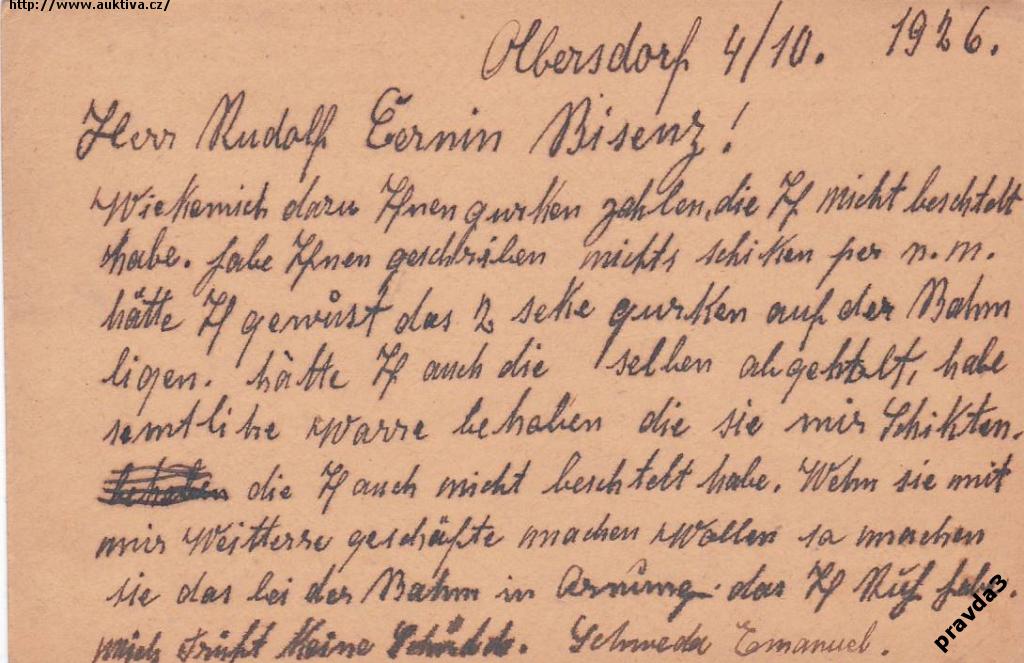 http://www.auktiva.cz/
Olbersdorf 4/10. 1926.
Herr Rudolf Černin Bisenz!
Wiekemich dazu Ihnen gurken zahlen, die Ih nicht beschtelt
habe. habe Ihnen geschriben nichts schiken per n.m.
hätte Ih gewůst das 2 seke gurken auf der Bahm
ligen. hätte Ih auch die selben abgehtelt, habe
semtliche Warre behalben die sie mir Schikten.
die Ih auch nicht beschtelt habe. Wehn sie mit
mir Weitterre geschäfte machen Wollen so machen
sie das bei der Bahm in Arnůng. das Ih
mich trift keine Schuld. Schweda Emanuel.
pravda3